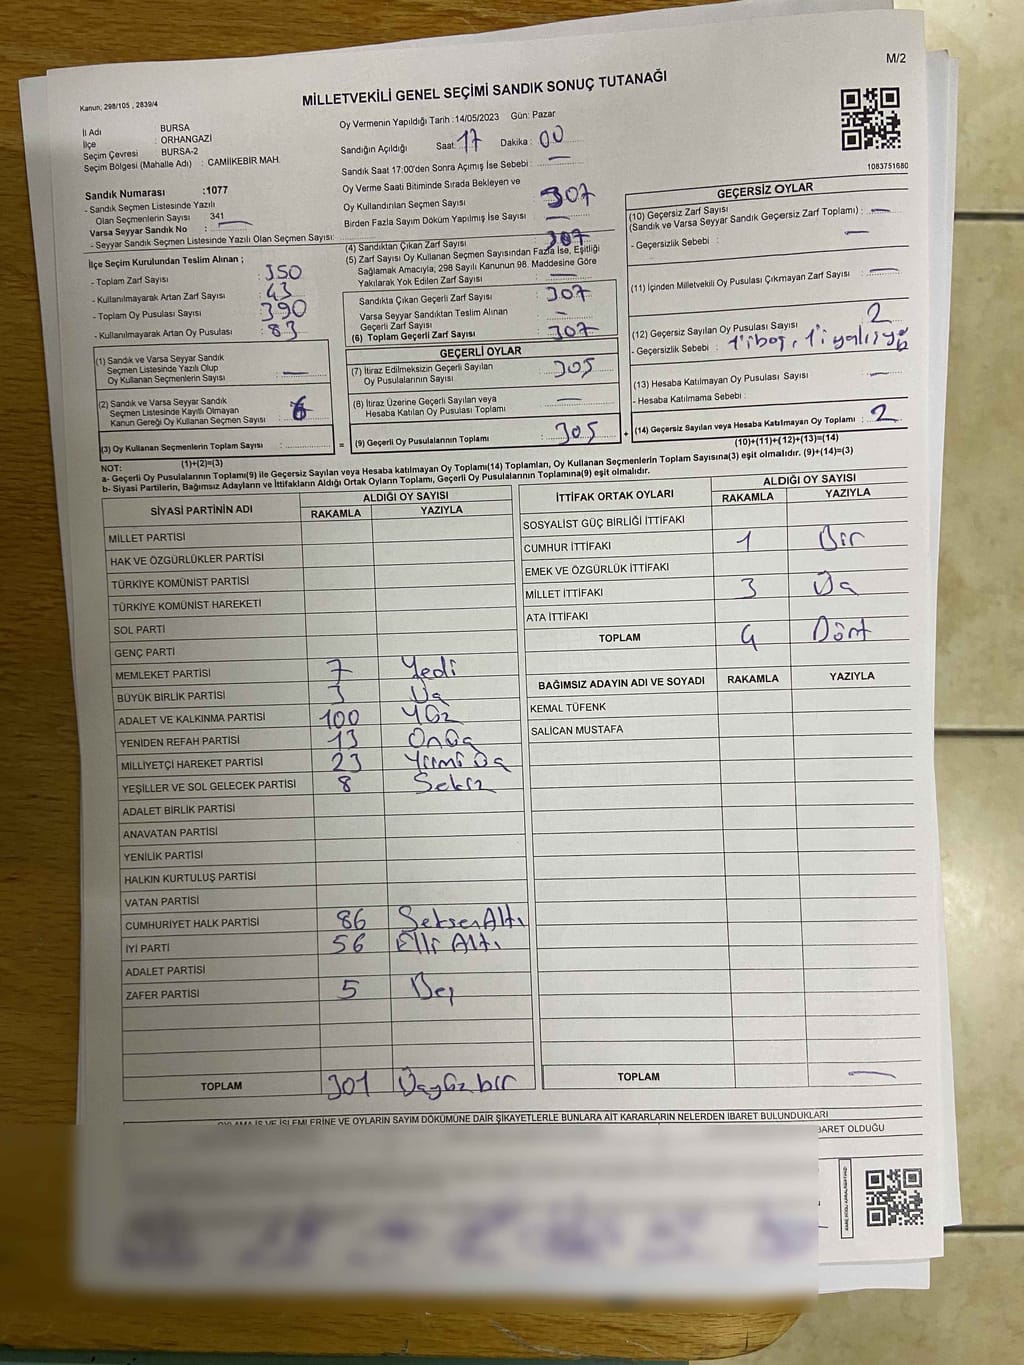 M/2
Kanun; 298/105 , 2839/4
MİLLETVEKİLİ GENEL SEÇİMİ SANDIK SONUÇ TUTANAĞI
İl Adı BURSA
İlçe : ORHANGAZİ
Seçim Çevresi BURSA-2
Seçim Bölgesi (Mahalle Adı) : CAMİİKEBİR MAH.
Sandık Numarası :1077
- Sandık Seçmen Listesinde Yazılı
Olan Seçmenlerin Sayısı 341
Varsa Seyyar Sandık No :
- Seyyar Sandık Seçmen Listesinde Yazılı Olan Seçmen Sayısı:
Oy Vermenin Yapıldığı Tarih :14/05/2023 Gün: Pazar
Sandığın Açıldığı Saat: 17 Dakika : 00
Sandık Saat 17:00'den Sonra Açımış İse Sebebi : —
Oy Verme Saati Bitiminde Sırada Bekleyen ve
Oy Kullandırılan Seçmen Sayısı : 307
Birden Fazla Sayım Döküm Yapılmış İse Sayısı : —
1083751680
İlçe Seçim Kurulundan Teslim Alınan ;
- Toplam Zarf Sayısı : 350
- Kullanılmayarak Artan Zarf Sayısı : 43
- Toplam Oy Pusulası Sayısı : 390
- Kullanılmayarak Artan Oy Pusulası : 83
(1) Sandık ve Varsa Seyyar Sandık
Seçmen Listesinde Yazılı Olup
Oy Kullanan Seçmenlerin Sayısı : —
(2) Sandık ve Varsa Seyyar Sandık
Seçmen Listesinde Kayıtlı Olmayan
Kanun Gereği Oy Kullanan Seçmen Sayısı : 6
(3) Oy Kullanan Seçmenlerin Toplam Sayısı :
(1)+(2)=(3)
(4) Sandıktan Çıkan Zarf Sayısı : 307
(5) Zarf Sayısı Oy Kullanan Seçmen Sayısından Fazla İse, Eşitliği
Sağlamak Amacıyla; 298 Sayılı Kanunun 98. Maddesine Göre
Yakılarak Yok Edilen Zarf Sayısı : —
Sandıkta Çıkan Geçerli Zarf Sayısı : 307
Varsa Seyyar Sandıktan Teslim Alınan
Geçerli Zarf Sayısı : —
(6) Toplam Geçerli Zarf Sayısı : 307
GEÇERLİ OYLAR
(7) İtiraz Edilmeksizin Geçerli Sayılan
Oy Pusulalarının Sayısı : 305
(8) İtiraz Üzerine Geçerli Sayılan veya
Hesaba Katılan Oy Pusulası Toplamı : —
= (9) Geçerli Oy Pusulalarının Toplamı : 305 +
GEÇERSİZ OYLAR
(10) Geçersiz Zarf Sayısı
(Sandık ve Varsa Seyyar Sandık Geçersiz Zarf Toplamı) : —
- Geçersizlik Sebebi : —
(11) İçinden Milletvekili Oy Pusulası Çıkmayan Zarf Sayısı : —
(12) Geçersiz Sayılan Oy Pusulası Sayısı : 2
- Geçersizlik Sebebi : 1'i boş, 1'i
(13) Hesaba Katılmayan Oy Pusulası Sayısı : —
- Hesaba Katılmama Sebebi :
(14) Geçersiz Sayılan veya Hesaba Katılmayan Oy Toplamı : 2
(10)+(11)+(12)+(13)=(14)
NOT:
a- Geçerli Oy Pusulalarının Toplamı(9) ile Geçersiz Sayılan veya Hesaba katılmayan Oy Toplamı(14) Toplamları, Oy Kullanan Seçmenlerin Toplam Sayısına(3) eşit olmalıdır. (9)+(14)=(3)
b- Siyasi Partilerin, Bağımsız Adayların ve İttifakların Aldığı Ortak Oyların Toplamı, Geçerli Oy Pusulalarının Toplamına(9) eşit olmalıdır.
SİYASİ PARTİNİN ADI ALDIĞI OY SAYISI
RAKAMLA YAZIYLA
MİLLET PARTİSİ
HAK VE ÖZGÜRLÜKLER PARTİSİ
TÜRKİYE KOMÜNİST PARTİSİ
TÜRKİYE KOMÜNİST HAREKETİ
SOL PARTİ
GENÇ PARTİ
MEMLEKET PARTİSİ 7 Yedi
BÜYÜK BİRLİK PARTİSİ 3 Üç
ADALET VE KALKINMA PARTİSİ 100 Yüz
YENİDEN REFAH PARTİSİ 13 Onüç
MİLLİYETÇİ HAREKET PARTİSİ 23 Yirmi Üç
YEŞİLLER VE SOL GELECEK PARTİSİ 8 Sekiz
ADALET BİRLİK PARTİSİ
ANAVATAN PARTİSİ
YENİLİK PARTİSİ
HALKIN KURTULUŞ PARTİSİ
VATAN PARTİSİ
CUMHURİYET HALK PARTİSİ 86 Seksen Altı
İYİ PARTİ 56 Elli Altı
ADALET PARTİSİ
ZAFER PARTİSİ 5 Beş
TOPLAM 301 Üçyüz bir
İTTİFAK ORTAK OYLARI ALDIĞI OY SAYISI
RAKAMLA YAZIYLA
SOSYALİST GÜÇ BİRLİĞİ İTTİFAKI
CUMHUR İTTİFAKI 1 Bir
EMEK VE ÖZGÜRLÜK İTTİFAKI
MİLLET İTTİFAKI 3 Üç
ATA İTTİFAKI
TOPLAM 4 Dört
BAĞIMSIZ ADAYIN ADI VE SOYADI RAKAMLA YAZIYLA
KEMAL TÜFENK
SALİCAN MUSTAFA
TOPLAM —
OYLAMA İŞ VE İŞLEMLERİNE VE OYLARIN SAYIM DÖKÜMÜNE DAİR ŞİKAYETLERLE BUNLARA AİT KARARLARIN NELERDEN İBARET BULUNDUKLARI
BARET OLDUĞU